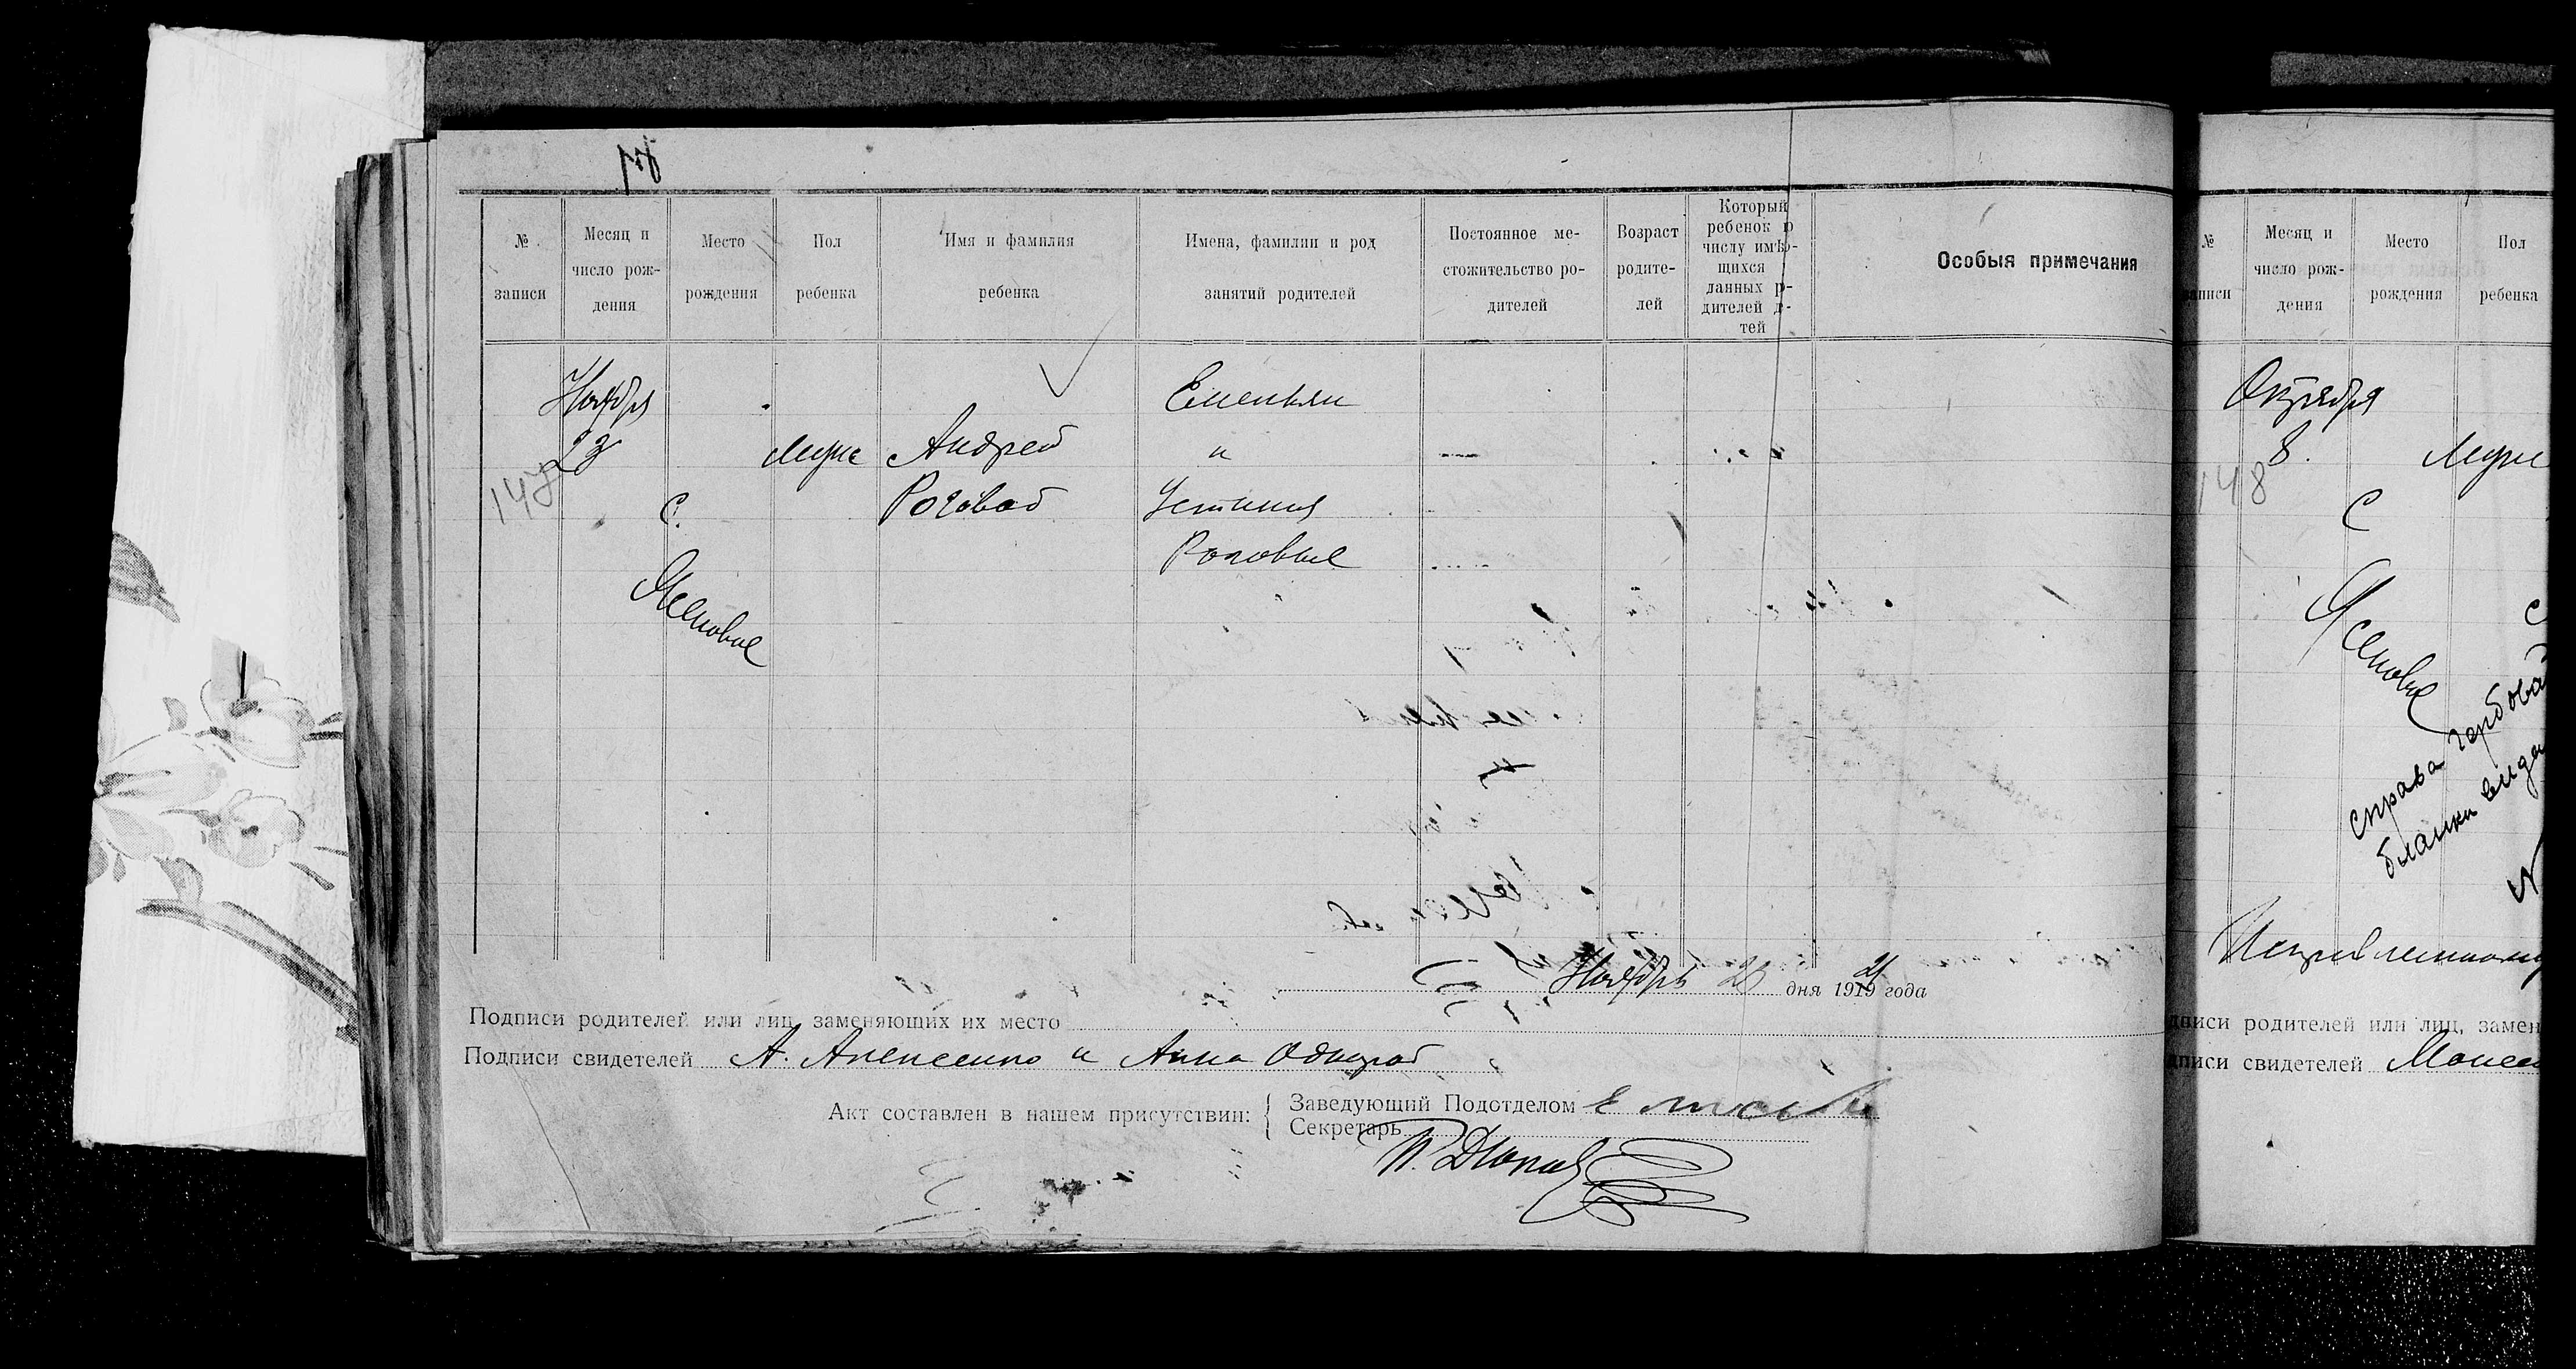 № записи
Месяц и число рож-дения
Место рождения
Пол ребенка
Имя и фамилия ребенка
Имена, фамилии и род занятий родителей
Постоянное ме-стожительство ро-дителей
Возраст родите-лей
Который
ребенок п
числу имѣю-
щихся
данных р-
дителей д-
тей
Особыя примечания
147
Ноября
23
с.
Ясеновое
Муж
Андрей
Роговой
Емельян
и
Устиния
Роговые
Ноября 2 дня 1919 года
21
Подписи родителей или лиц, заменяющих их место
Подписи свидетелей А. Алексеенко и Анна
Акт составлен в нашем присутствии:
Заведующий Подотделом
Секретарь
№ записи
Месяц и число рож-дения
Место рождения
Пол ребенка
148
Октября
8.
С
Муж
справа гербовая
бланки выда
писи родителей или лиц, замен
писи свидетелей